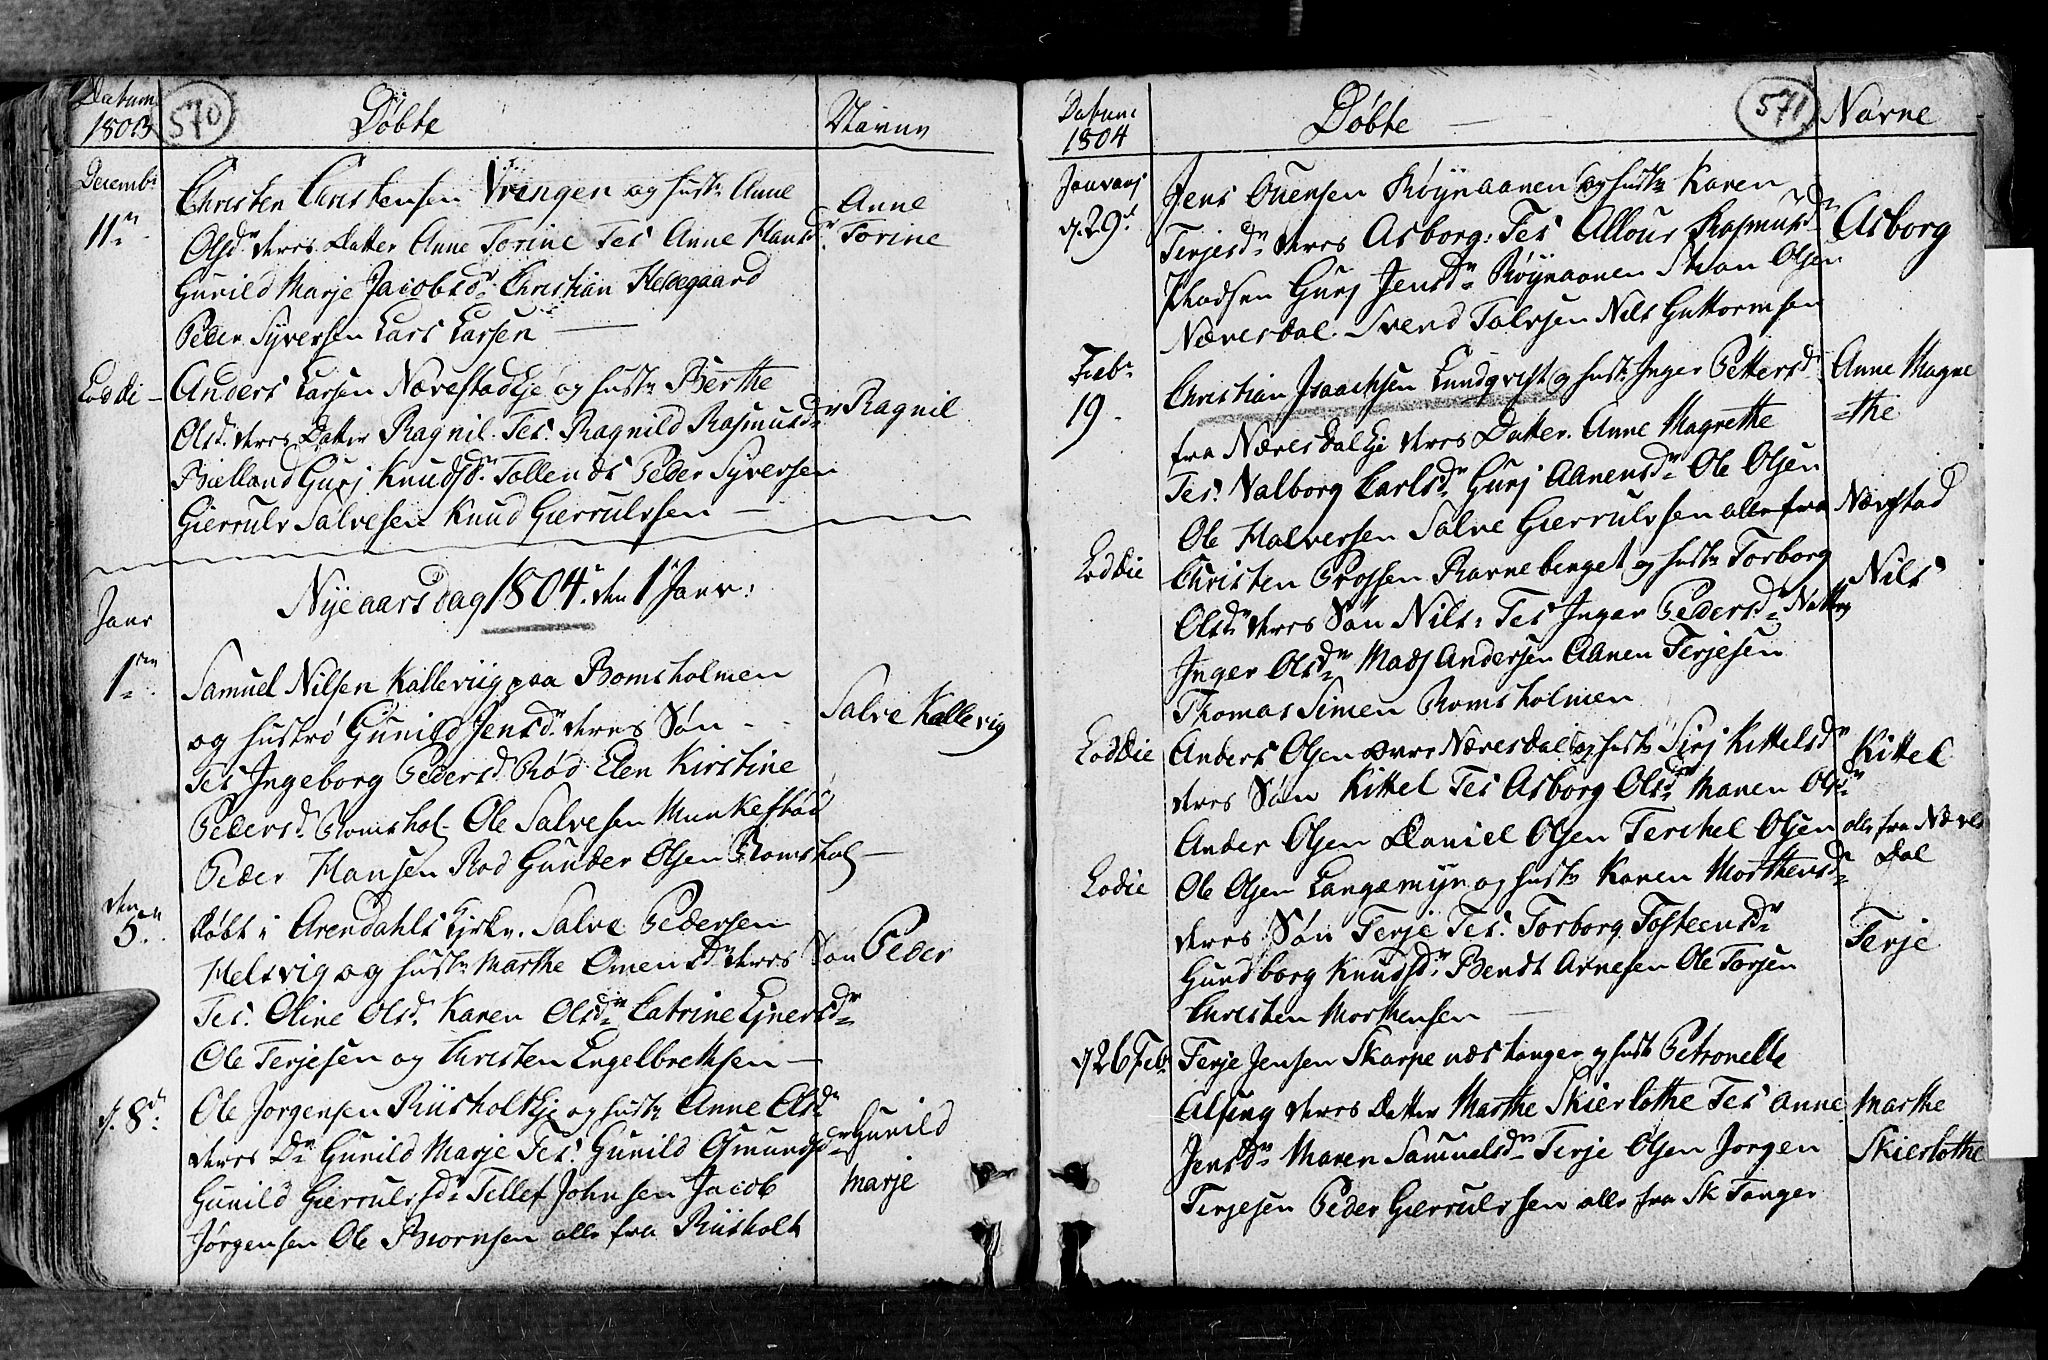 Datum
1803
570
Døbte
Navne
Decembr
11te
Christen Christensen Vringen og hustr Anne
Olsdr deres Datter Anne Torine Tes Anne Hansdr
Gunild Marje Jacobsdr Christian Hedegaard
Peder Syversen Lars Larsen
Anne
Torine
Eoddie
Anders Larsen Nævestad Eje og hustr Berthe
Olsd. deres Datter Ragnil. Tes. Ragnild Rasmusdr
Bielland Gurj Knudsdr Peder Syversen
Gierrulv Salvesen Knud Gierrulvsen
Ragnil
Nye aarsdag 1804. den 1 Janr:
Janr
1ten
Samuel Nilsen Kallevig paa Bomsholmen
og hustrø Gunild Jensdr deres Søn
Tes Ingeborg Pedersd. Rød Elen Kirstine
Pedersd. Bomshol. Ole Salvesen Munkestød
Peder Hansen Rød Gunder Olsen Bomshol
Salve Kallevig
den
5te
døbt i Arendahls Kirke. Salve Pedersen
Helsvig og hustr Marthe Omensdr deres Søn
Tes. Oline Olsd. Karen Olsdr Catrine Ejnersdr
Ole Terjesen og Christen Engelbrethsen
Peder
d. 8d.
Ole Jorgensen Riisholt Eje og hustr Anne Olsdr
deres Dr Gunild Marje Tes Gunild Osmundsdr
Gunild Gierrulvsdr Tellef Johnsen Jacob
Jørgensen Ole Biornsen alle fra Riisholt
Gunild
Marje
Datum
1804
Døbte
571
Navne
Januarj
d. 29d
Jens Ouensen Røynaanen og hustr Karen
Terjesdr deres Asborg: Tes Allour Rasmusdr
Gurj Jensdr Røynaanen Olsen
Nævesdal. Svend Talvsen Nils Guttormsen
Asborg
Febr
19
Christian Isaachsen Lundqvist og hustr Inger Pettersd
fra Næresdal Eje deres Datter. Anne Magrethe
Tes. Valborg Carlsdr Gurj Aanensdr Ole Olsen
Ole Halversen Salve Gierrulvsen alle fra Nævstad
Anne Magre
=the
Eoddie
Christen Ravneberget og hustr Torborg
Olsdr deres Søn Nils: Tes Inger Pedersdr
Inger Olsdr Mads Andersen Aanen Terjesen
Thomas Simen Bomsholmen
Nils
Eoddie
Anders Olsen Næresdal og hustr Sirj Kittelsdr
deres Søn Kittel Tes Asborg Olsd Maren Olsdr
Ander Olsen Daniel Olsen Terchel Olsen alle fra Næves
Dal
Kittel
Eodie
Ole Olsen Langemyr og hustr Karen Morthensdr
deres Søn Terje Tes. Torborg Tosteensdr
Gundborg Knudsdr Bendt Arnesen Ole Torsen
Christen Morthensen
Terje
d 26 Feb.
Terje Jensen Skarpenæs tanger og hustr Petronelle
Alsing deres Datter Marthe Skierlothe Tes Anne
Jensdr Maren Samuelsdr Terje Olsen Jorgen
Terjesen Peder Gierrulvsen alle fra Sk Tanger
Marthe
Skierlothe